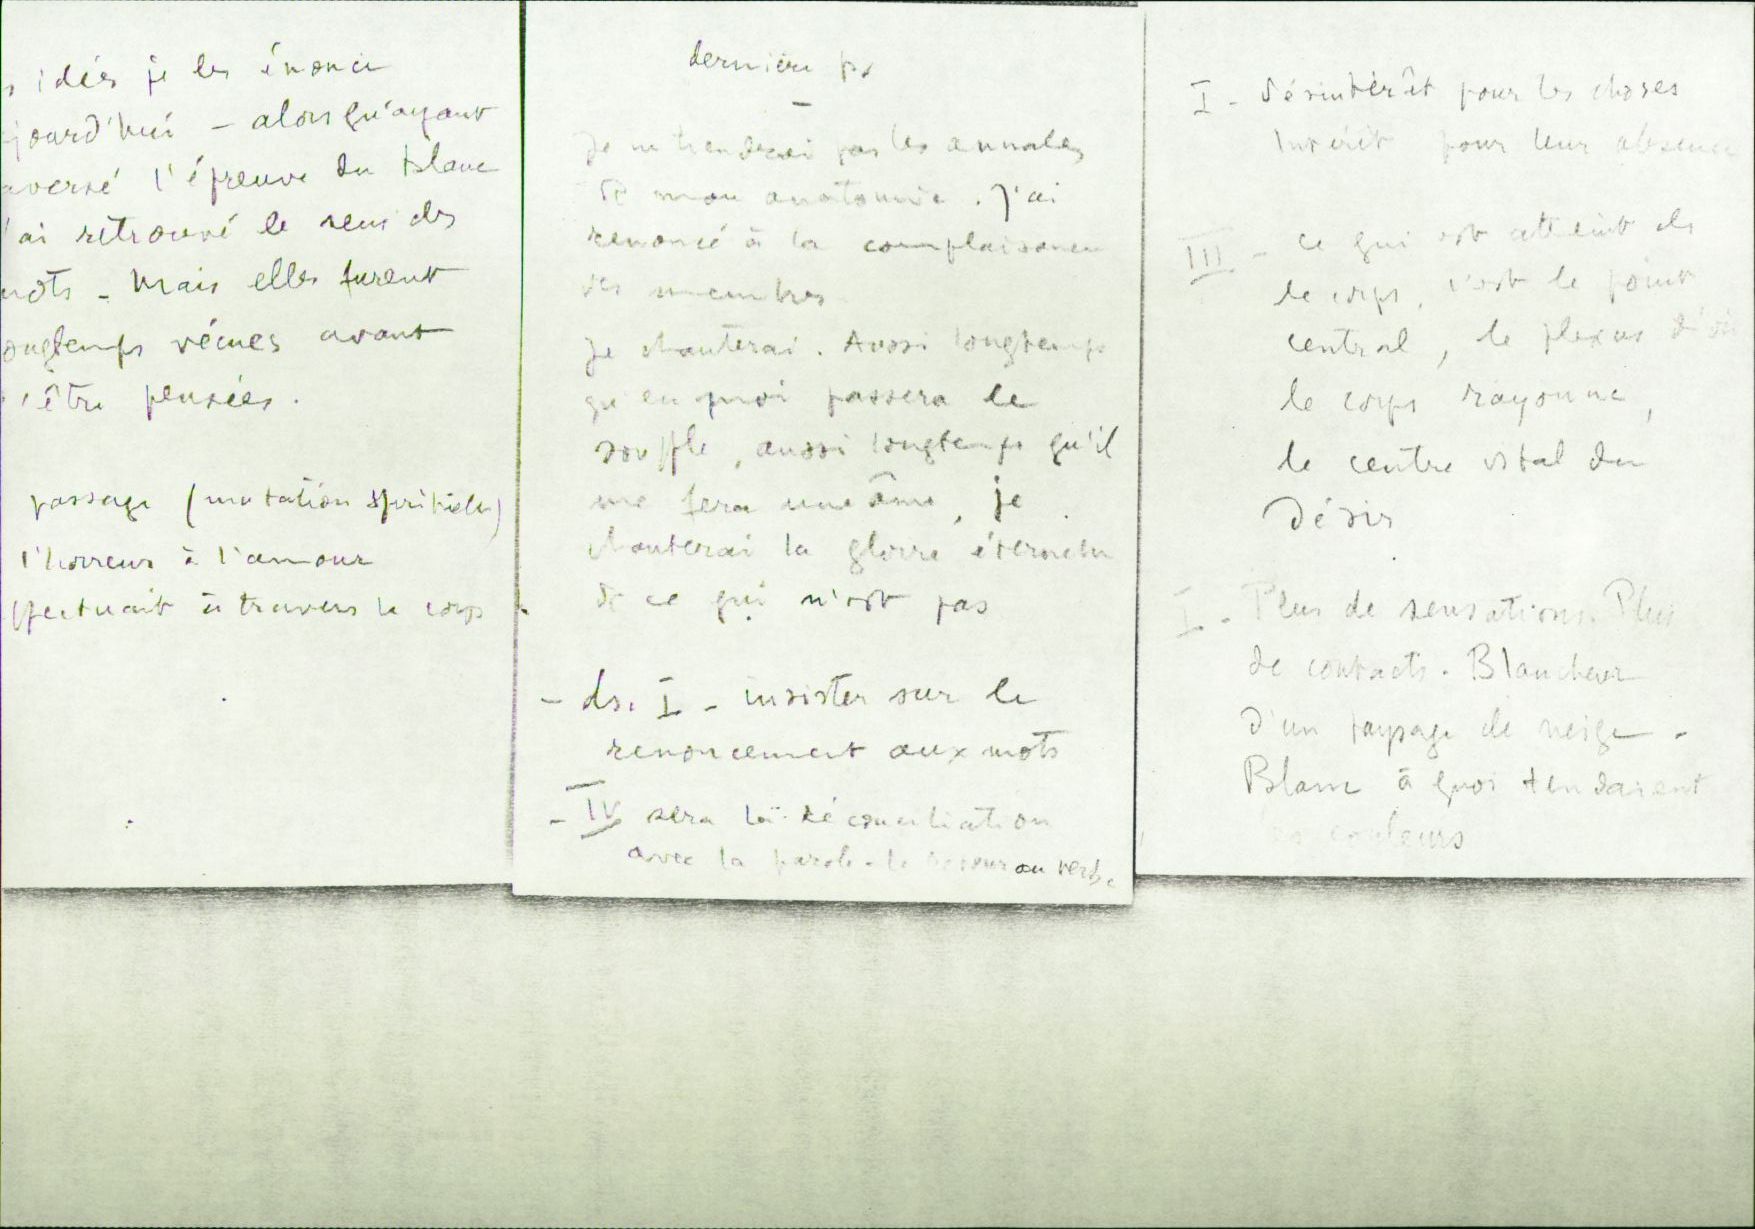 s idées je les énonce
jourd'hui – alors qu'ayant
aversé l'épreuve du blanc
'ai retrouvé le sens des
mots – Mais elles furent
ongtemps vécues avant
d'être pensées.
passage (mutation spirituelle)
l'horreur à l'amour
ffectuait à travers le corps
dernière p.
–
Je ne tiendrai pas les annales
de mon anatomie. J'ai
renoncé à la complaisance
des membres
Je chanterai. Aussi longtemps
qu'en moi passera le
souffle, aussi longtemps qu'il
me fera une âme, je
chanterai la gloire éternelle
de ce qui n'est pas
– ds. I – insister sur le
renoncement aux mots
– IV sera la réconciliation
avec la parole – le retour au verbe
I – Désintérêt pour les choses
Intérêt pour leur absence
III – ce qui est atteint ds
le corps, c'est le point
central, le plexus d'où
le corps rayonne,
le centre vital du
Désir
I – Plus de sensations. Plus
de contacts. Blancheur
d'un paysage de neige –
Blanc à quoi tendaient
les couleurs